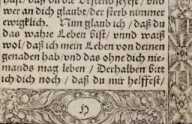 vnd
wer an dich glaubt der sterb nimmer
ewigklich. Nun glaub ich / daß du
das wahre Leben bist / vnnd waiß
wol / daß ich mein Leben von deinen
genaden hab / vnd das ohne dich nie-
mands mag leben / Derhalben bitt
ich dich noch / daß du mir helffest /